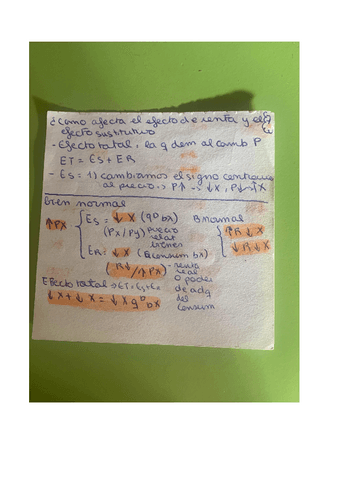 ¿Como afecta el efecto de renta y el
efecto sustitutivo
- Efecto total, la q dem al camb P
ET = ES + ER
- ES: 1) cambiamos el signo contrario
al precio -> P↑ -> ↓X, P↓ ↑X
bien normal
↑PX
ES = ↓ X (qD bx)
(Px/Py) precio
relat
bienes
ER = ↓ X (consum bx)
(R↓ /↑PX)
- renta
real
o poder
de adq
del
consum
B normal
↑R ↓ X
↓R ↓ X
Efecto total
↓X + ↓ X = ↓ X qD bx